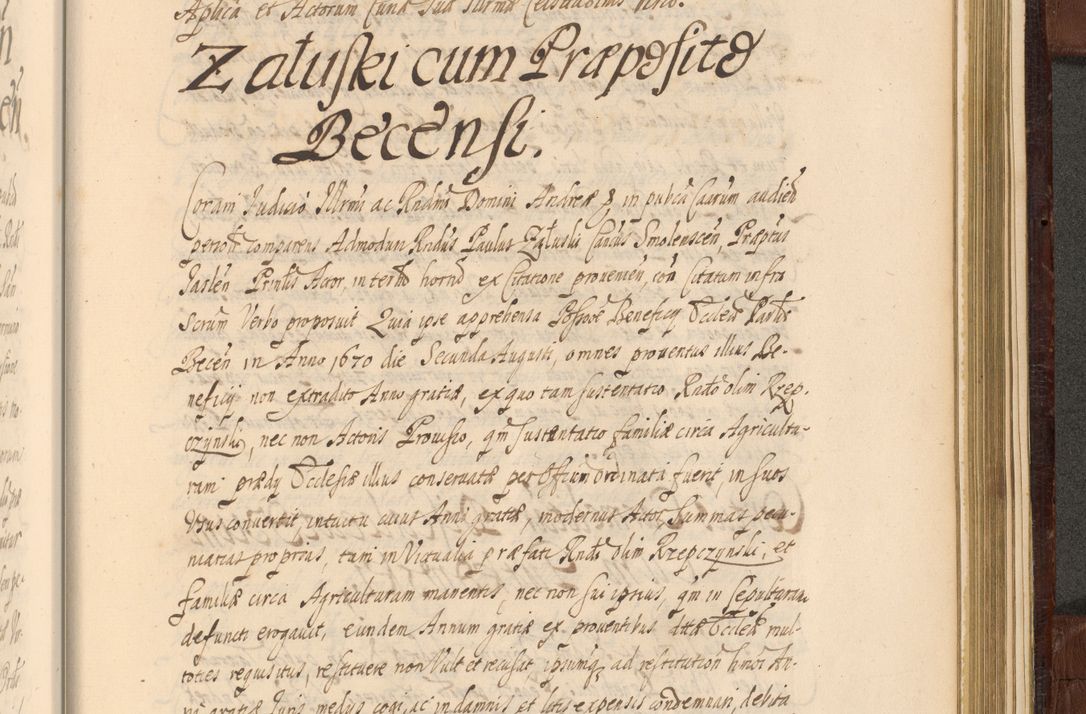 Aplica et Actorum
Załuski cum Præposito
Becensi.
Coram Judicio Illrmi ac Rndmi Domini Andreæ in publica Caarum audien
person comparens Admodum Rndus Paulus Załuski Canus Smolenscen, Præptus
Jaslen Prnlis Actor, in termo horno ex Citatione provenien, con Citatum infra
Scrum Verbo proposuit Quia ipse apprehensa Possoe Beneficij Ecclesæ Parlis
Becen in Anno 1670 die Secunda Augusti, omnes proventus illius Be-
neficij non extradito Anno gratiæ, ex quo tam sustentatio Rndo olim Rzep-
czynski, nec non Actoris Provisio, qm sustentatio familiæ circa Agricultu-
ram prædij Ecclesiæ illius conservatæ per Officium Ordinata fuerit, in suos
Usus convertit, intactu cuius Anni gratiæ, modernus Actor, Summas pecu-
niarias proprias, tam in Victualia præfati Rndi olim Rzepczynski, et
familiæ circa Agriculturam manentis, nec non sui ipsius, qm in Sepulturam
defuncti erogavit, eundem Annum gratiæ ex proventibus dictæ Ecclesæ mul-
toties requisitus, restituere non Vult et recusat, ipsumq ad restitutionem huoi An-
ni gratiæ Juris medijs cogi, ac in damnis et litis expensis condemnari, debita